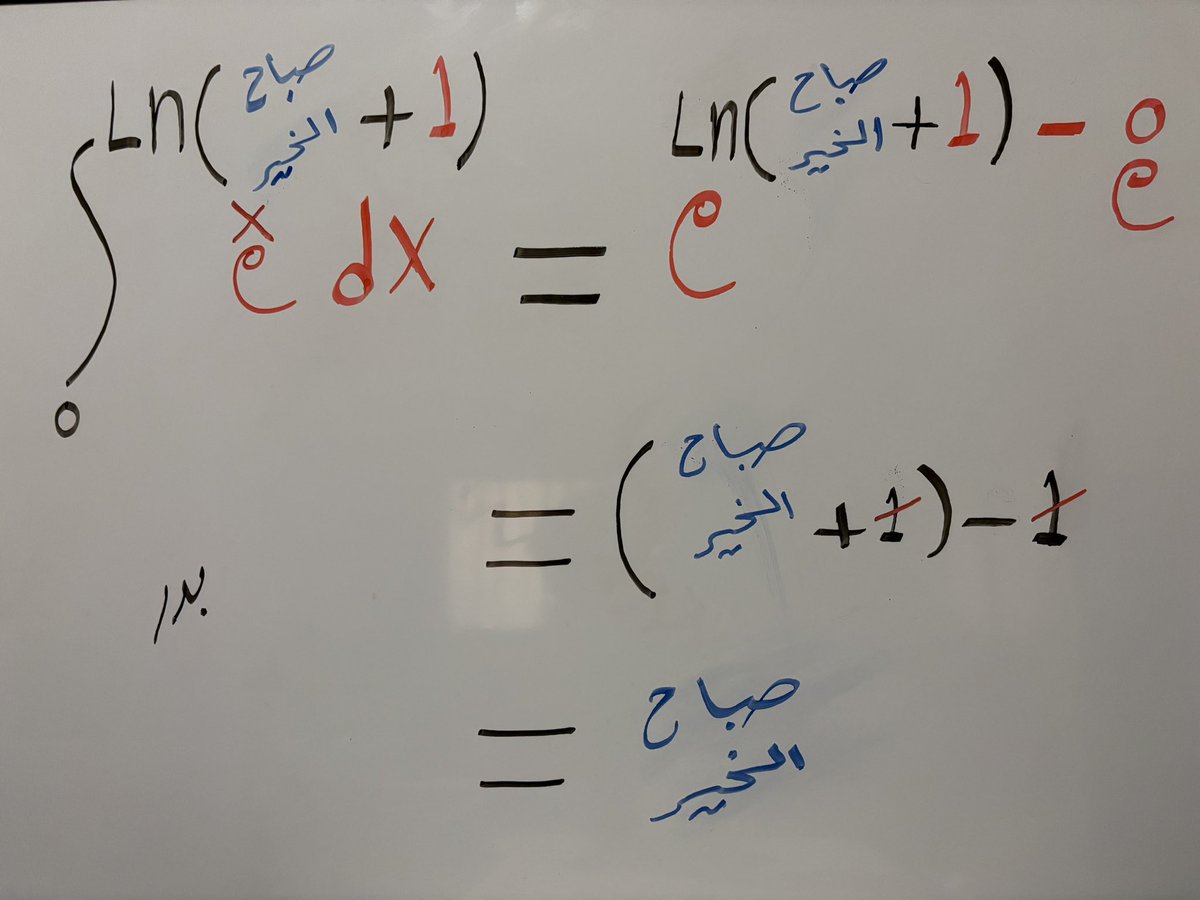 ∫₀^(Ln(صباح الخير + 1)) eˣ dx = e^(Ln(صباح الخير + 1)) - e⁰
= (صباح الخير + 1) - 1
بدر
= صباح الخير